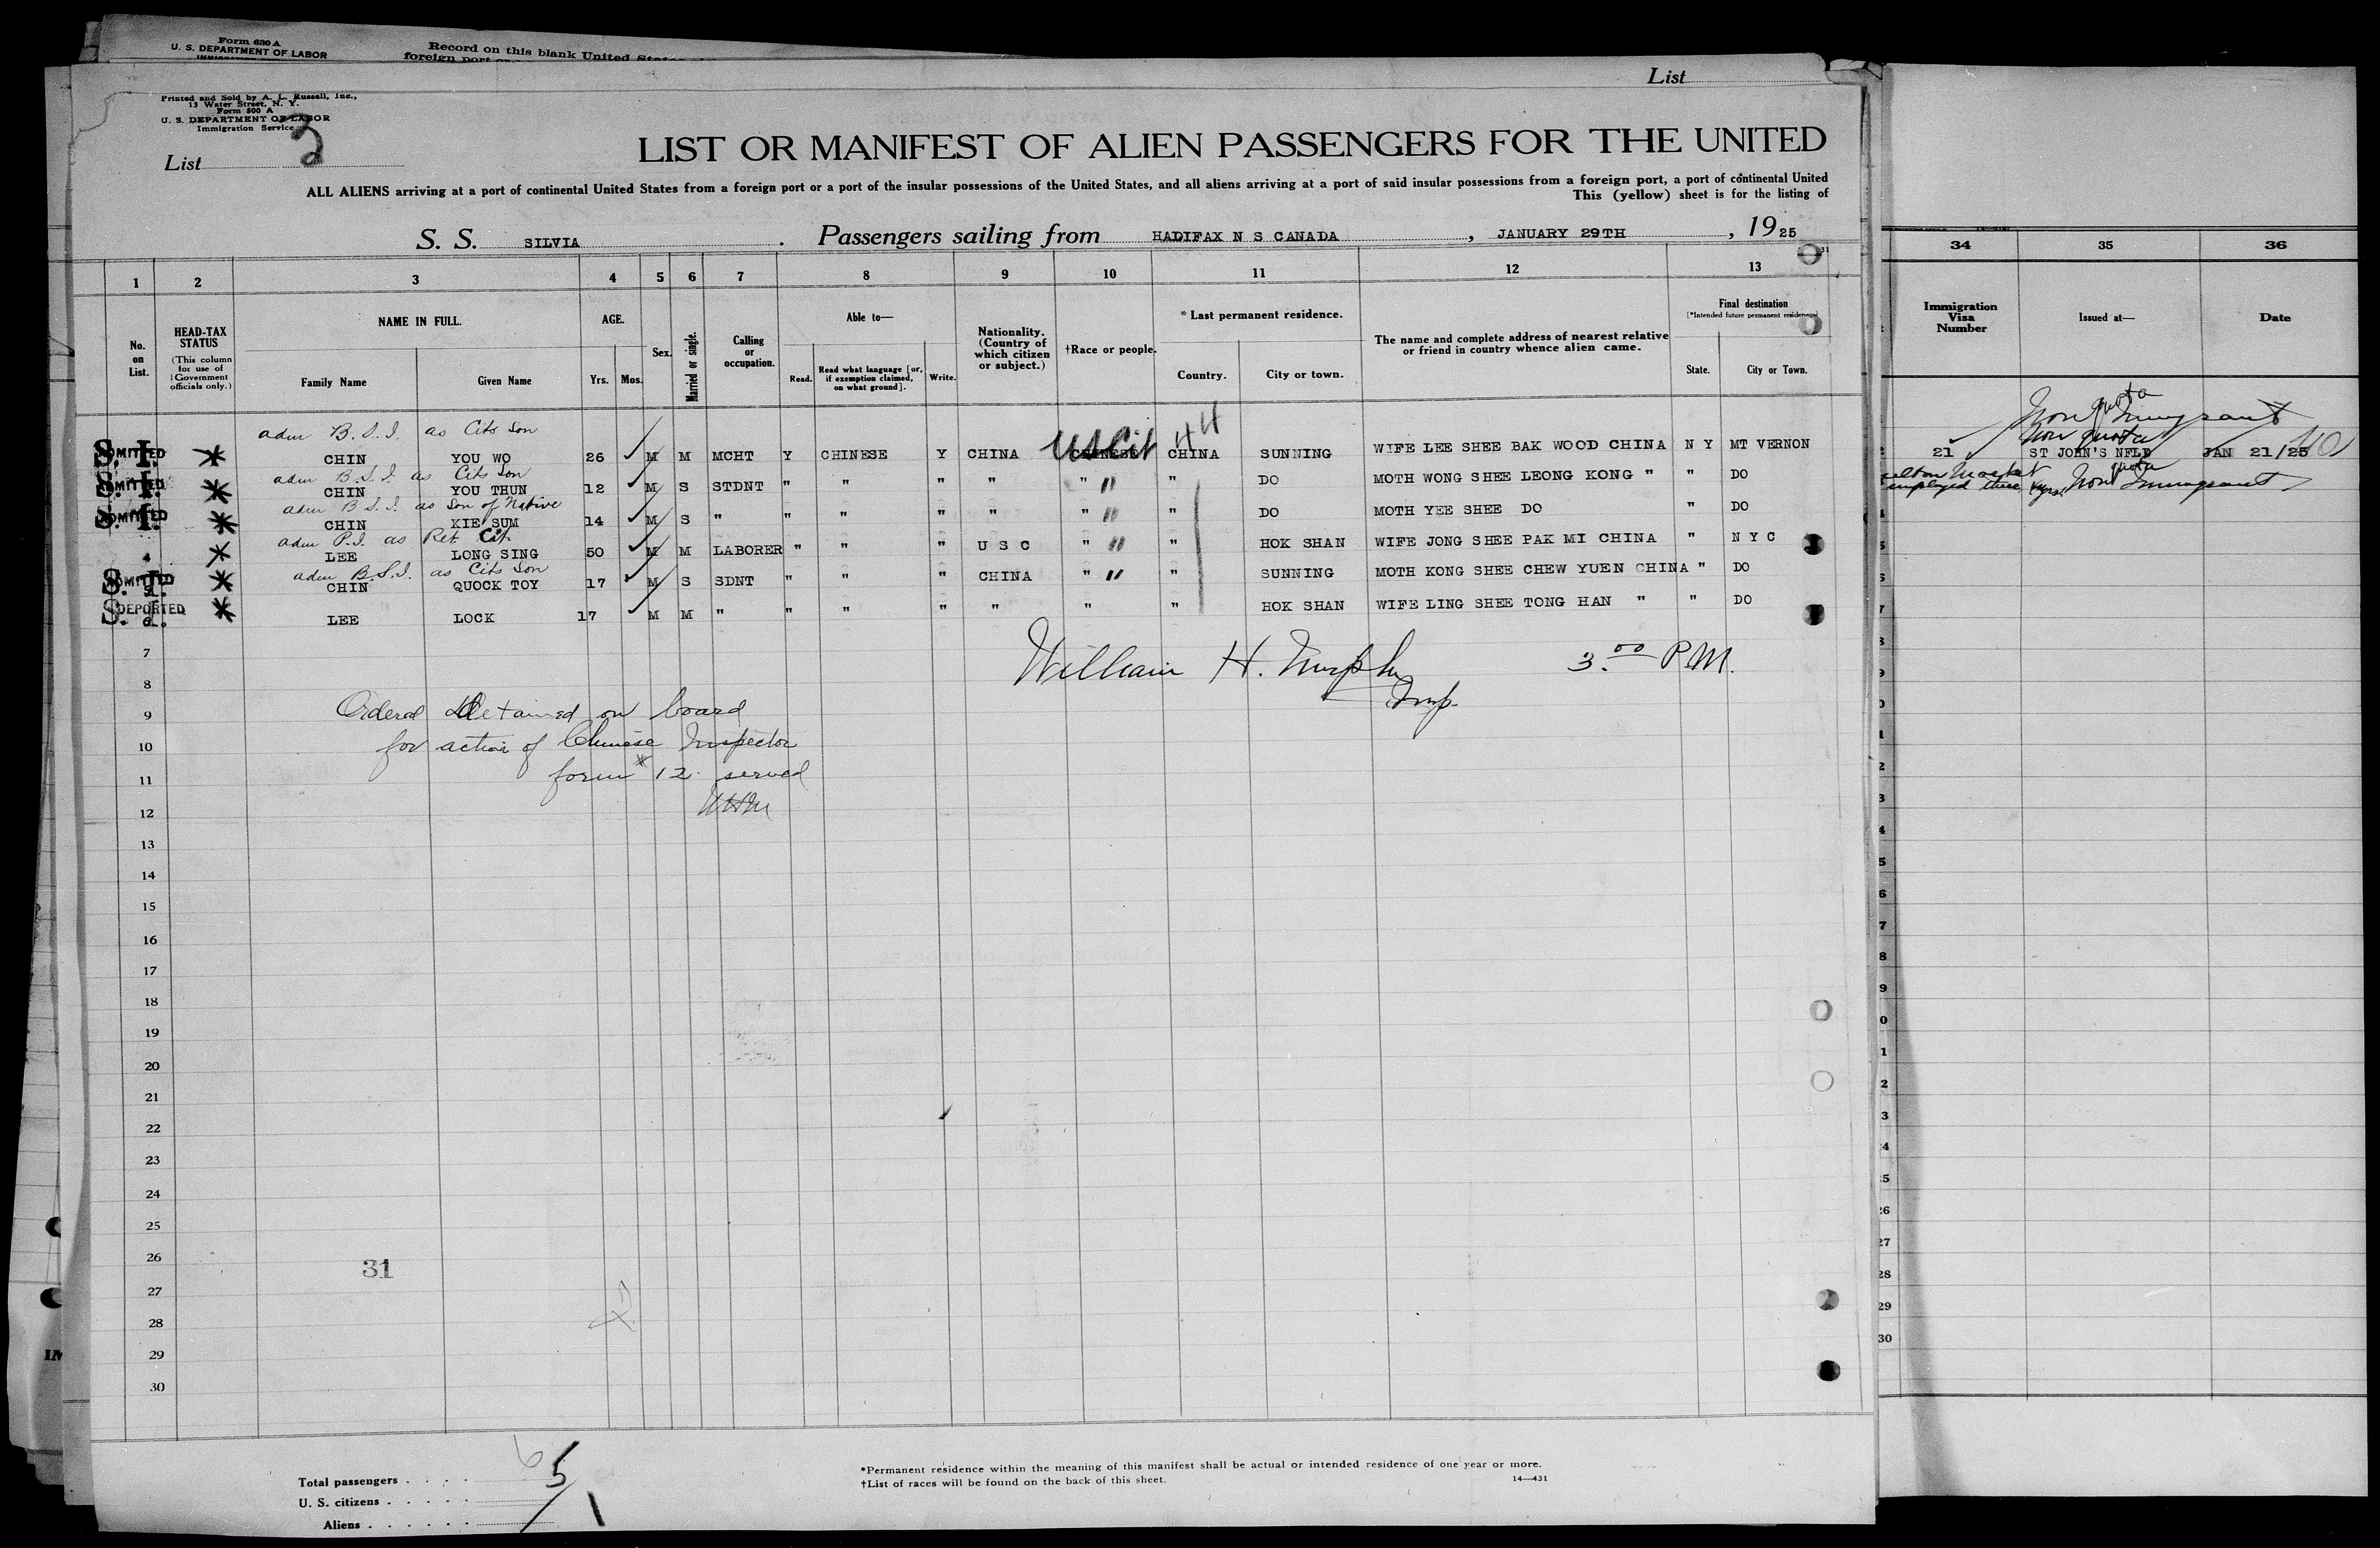 Form 630 A
U. S. DEPARTMENT OF LABOR
Record on this blank United States
foreign port
List
Printed and Sold by A. L. Russell, Inc.,
13 Water Street, N. Y.
Form 500 A
U. S. DEPARTMENT OF LABOR
Immigration Service
List 2
LIST OR MANIFEST OF ALIEN PASSENGERS FOR THE UNITED
ALL ALIENS arriving at a port of continental United States from a foreign port or a port of the insular possessions of the United States, and all aliens arriving at a port of said insular possessions from a foreign port, a port of continental United
This (yellow) sheet is for the listing of
S. S. SILVIA . Passengers sailing from HADIFAX N S CANADA , JANUARY 29TH , 1925
1 2 3 4 5 6 7 8 9 10 11 12 13 34 35 36
No. on List.
HEAD-TAX STATUS (This column for use of Government officials only.)
NAME IN FULL. Family Name Given Name
AGE. Yrs. Mos.
Sex.
Married or single.
Calling or occupation.
Able to— Read. Read what language [or, if exemption claimed, on what ground]. Write.
Nationality. (Country of which citizen or subject.)
†Race or people.
*Last permanent residence. Country. City or town.
The name and complete address of nearest relative or friend in country whence alien came.
Final destination [*Intended future permanent residence] State. City or Town.
Immigration Visa Number
Issued at—
Date
adm B.S.I. as Cits Son
Non quota Immigrant
S. I. ADMITTED CHIN YOU WO 26 M M MCHT Y CHINESE Y CHINA US Cit CHINESE CHINA SUNNING WIFE LEE SHEE BAK WOOD CHINA N Y MT VERNON 21 ST JOHN'S NFLD JAN 21/25
Non quota
adm B.S.I. as Cits Son
S. I. ADMITTED CHIN YOU THUN 12 M S STDNT " " " " " " DO MOTH WONG SHEE LEONG KONG " " DO
employed there Non quota Immigrant
adm B.S.I. as Son of Native
S. I. ADMITTED CHIN KIE SUM 14 M S " " " " " " " DO MOTH YEE SHEE DO " DO
adm P.I. as Ret. Cit.
4 LEE LONG SING 50 M M LABORER " " " U S C " " HOK SHAN WIFE JONG SHEE PAK MI CHINA " N Y C
adm B.S.I. as Cits Son
S. I. ADMITTED 5 CHIN QUOCK TOY 17 M S SDNT " " " CHINA " " SUNNING MOTH KONG SHEE CHEW YUEN CHINA " DO
S. I. DEPORTED 6 LEE LOCK 17 M M " " " " " " " HOK SHAN WIFE LING SHEE TONG HAN " " DO
7
William H. Murphy 3.00 P.M.
8
Insp.
9 Ordered Detained on board
10 for action of Chinese Inspector
11 form 12 served
12 WHM
13
14
15
16
17
18
19
20
21
22
23
24
25
26
31
27
28
29
30
Total passengers 6 5
U. S. citizens
Aliens 1
*Permanent residence within the meaning of this manifest shall be actual or intended residence of one year or more.
†List of races will be found on the back of this sheet. 14—431